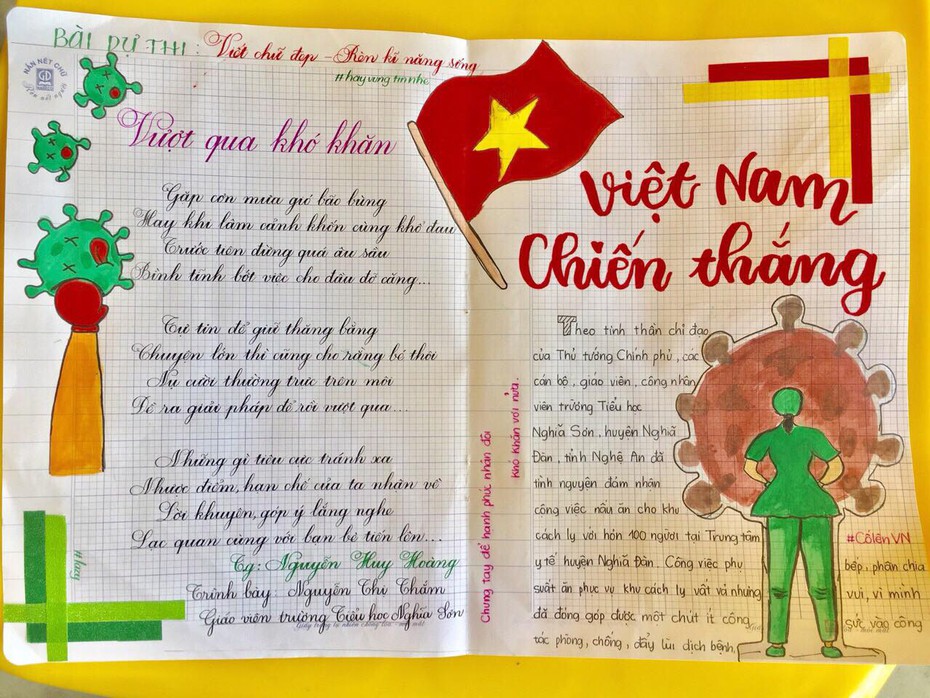 BÀI DỰ THI: Viết chữ đẹp - Rèn kĩ năng sống
#hayvungtinnhe
NẮN NÓT CHỮ
Rèn nết người
Vượt qua khó khăn
Gặp cơn mưa gió bão bùng
Hay khi lâm cảnh khốn cùng khổ đau
Trước tiên đừng quá âu sầu
Bình tĩnh bớt việc cho đầu đỡ căng...
Tự tin để giữ thăng bằng
Chuyện lớn thì cũng cho rằng bé thôi
Nụ cười thường trực trên môi
Để ra giải pháp để rồi vượt qua...
Những gì tiêu cực tránh xa
Nhược điểm, hạn chế của ta nhận về
Lời khuyên, góp ý lắng nghe
Lạc quan cùng với bạn bè tiến lên...
Tg: Nguyễn Huy Hoàng
Trình bày Nguyễn Thị Thắm
Giáo viên trường Tiểu học Nghĩa Sơn
Chung tay để hạnh phúc nhân đôi
Khó khăn vơi nửa.
Việt Nam
Chiến thắng
Theo tinh thần chỉ đạo
của Thủ tướng Chính phủ, các
cán bộ, giáo viên, công nhân
viên trường Tiểu học
Nghĩa Sơn, huyện Nghĩa
Đàn, tỉnh Nghệ An đã
tình nguyện đảm nhận
công việc nấu ăn cho khu
cách ly với hơn 100 người tại Trung tâm
y tế huyện Nghĩa Đàn. Công việc phụ bếp, phân chia
suất ăn phục vụ khu cách ly vất vả nhưng vui, vì mình
đã đóng góp được một chút ít công sức vào công
tác phòng, chống, đẩy lùi dịch bệnh.
#CốlênVN